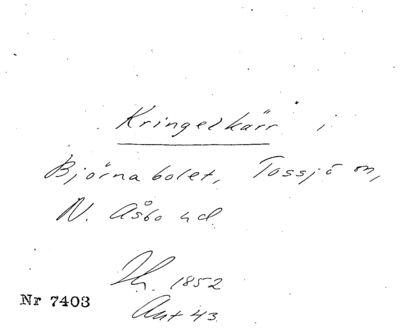 Kringelkärr i
Björnabolet, Tossjö sn,
N. Åsbo hd.
Th. 1852
Akt 43.
Nr 7403